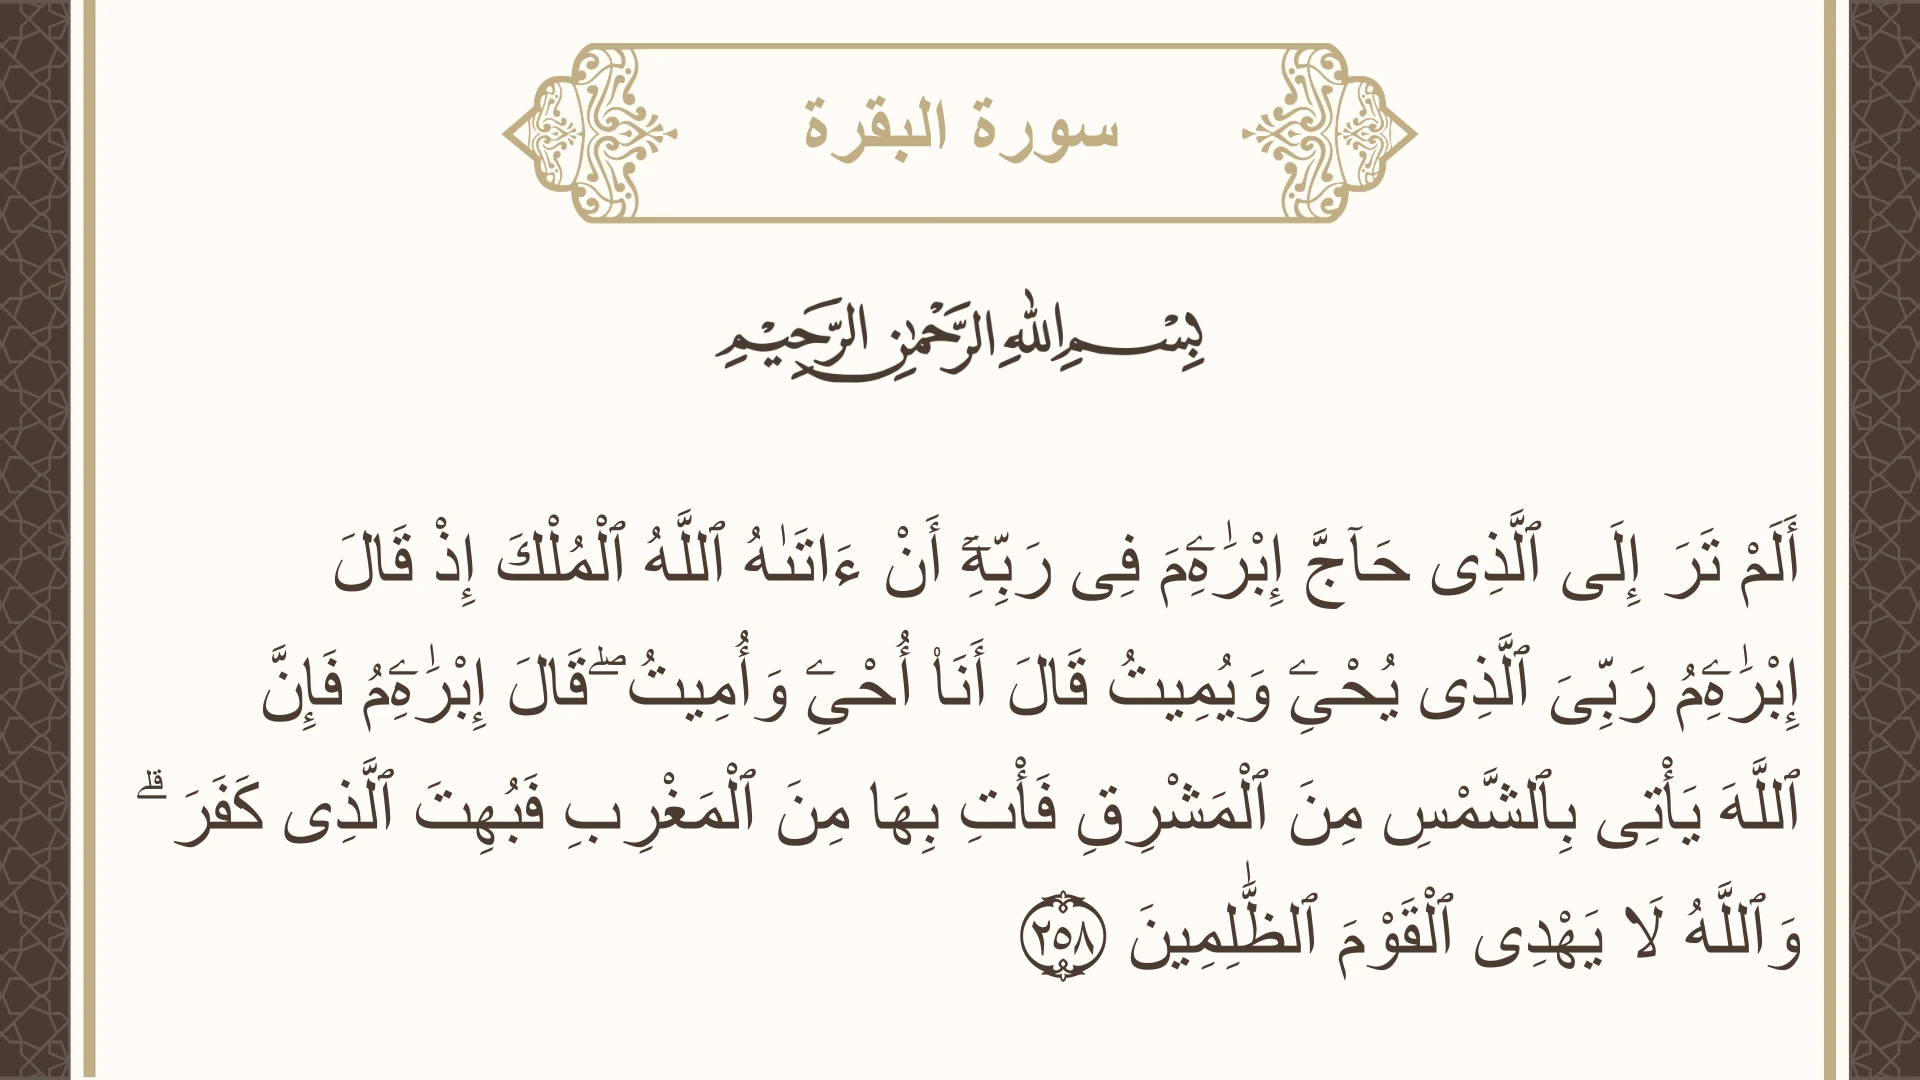 سورة البقرة
بِسْمِ اللهِ الرَّحْمٰنِ الرَّحِيْمِ
أَلَمْ تَرَ إِلَى ٱلَّذِى حَآجَّ إِبْرَٰهِۦمَ فِى رَبِّهِۦٓ أَنْ ءَاتَىٰهُ ٱللَّهُ ٱلْمُلْكَ إِذْ قَالَ
إِبْرَٰهِۦمُ رَبِّىَ ٱلَّذِى يُحْىِۦ وَيُمِيتُ قَالَ أَنَا۠ أُحْىِۦ وَأُمِيتُ ۖ قَالَ إِبْرَٰهِۦمُ فَإِنَّ
ٱللَّهَ يَأْتِى بِٱلشَّمْسِ مِنَ ٱلْمَشْرِقِ فَأْتِ بِهَا مِنَ ٱلْمَغْرِبِ فَبُهِتَ ٱلَّذِى كَفَرَ ۗ
وَٱللَّهُ لَا يَهْدِى ٱلْقَوْمَ ٱلظَّٰلِمِينَ ٢٥٨